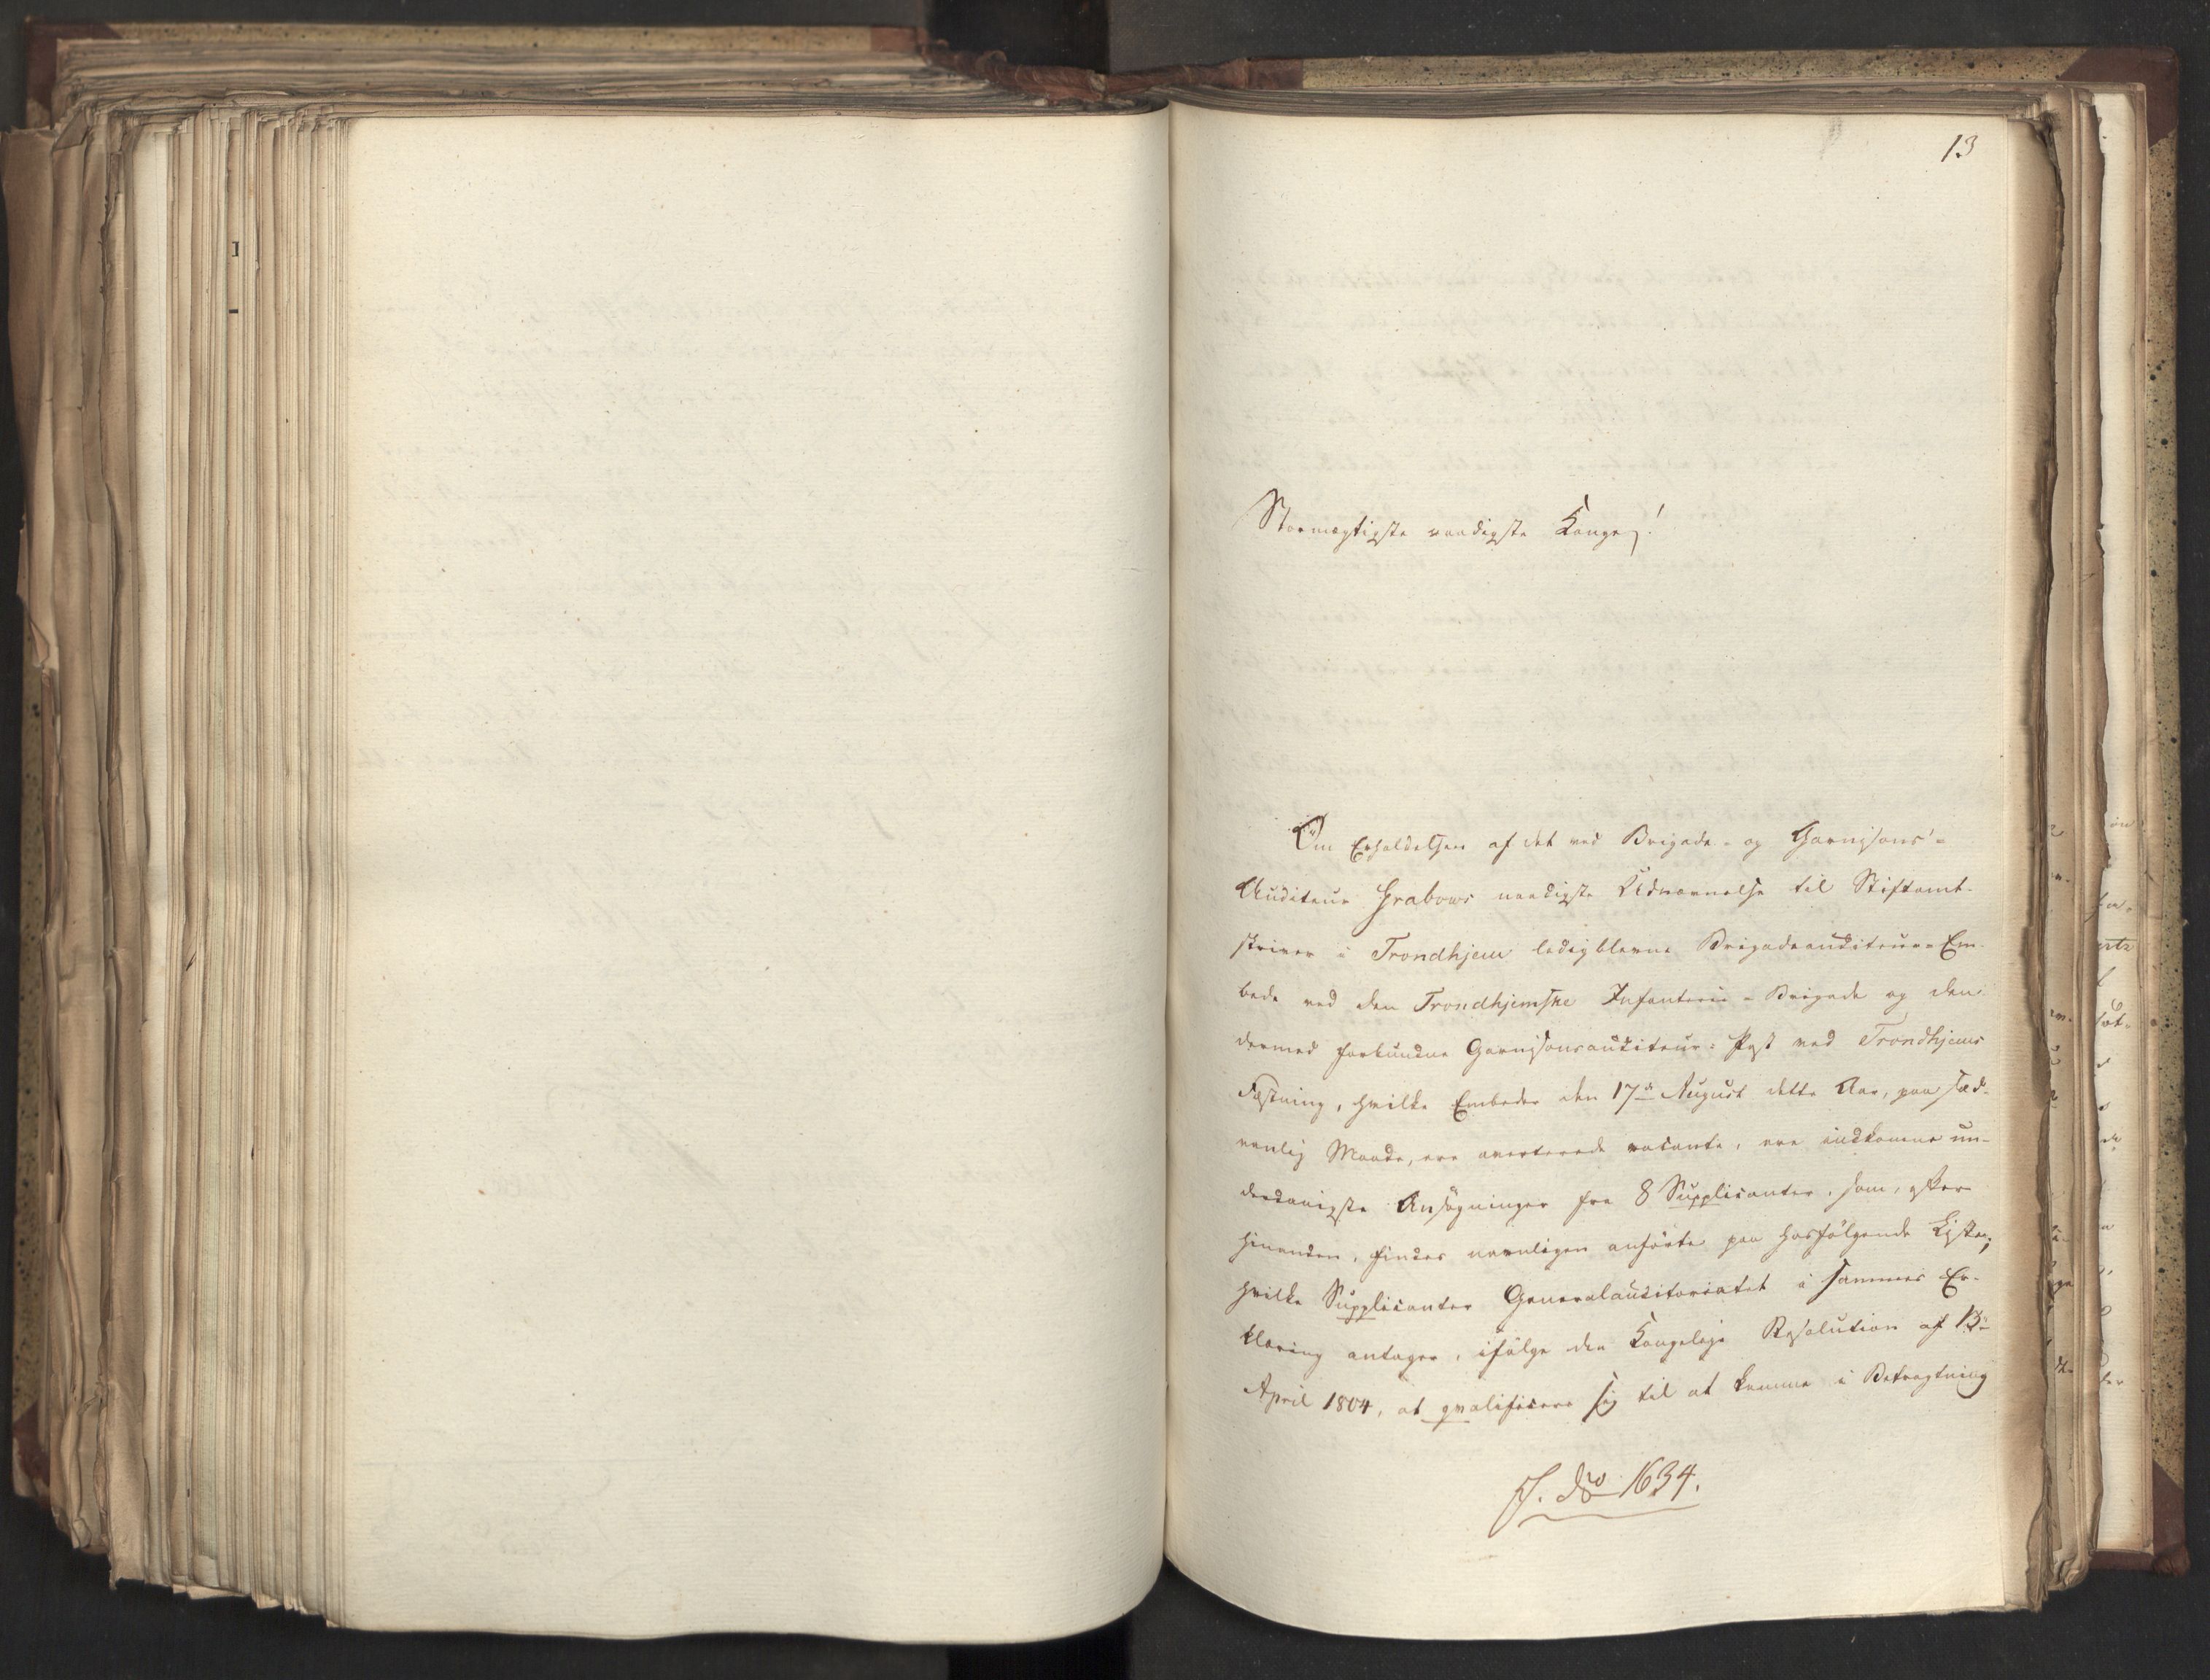 13
Stormægtigste naadigste Konge!
Om Erholdelsen af det ved Brigade- og Garnisons-
Auditeur Grabows naadigste Udnævnelse til Stiftamt-
skriver i Trondhjem ledigblevne Brigadeauditeur-Em-
bede ved den Trondhjemske Infanterie-Brigade og den
dermed forbundne Garnisonsauditeur-Post ved Trondhjems
Fæstning, hvilke Embeder den 17de August dette Aar, paa sæd-
vanlig Maade, ere averterede vacante, ere indkomne un-
derdanigste Ansøgninger fra 8 Supplicanter, som, efter
hinanden, findes navnligen anførte paa hosfølgende Liste;
hvilke Supplicanter Generalauditoriatet i sammes Er-
klæring antager, ifølge den Kongelige Resolution af 13de
April 1804, at qvalificere sig til at komme i Betragtning
J. No 1634.